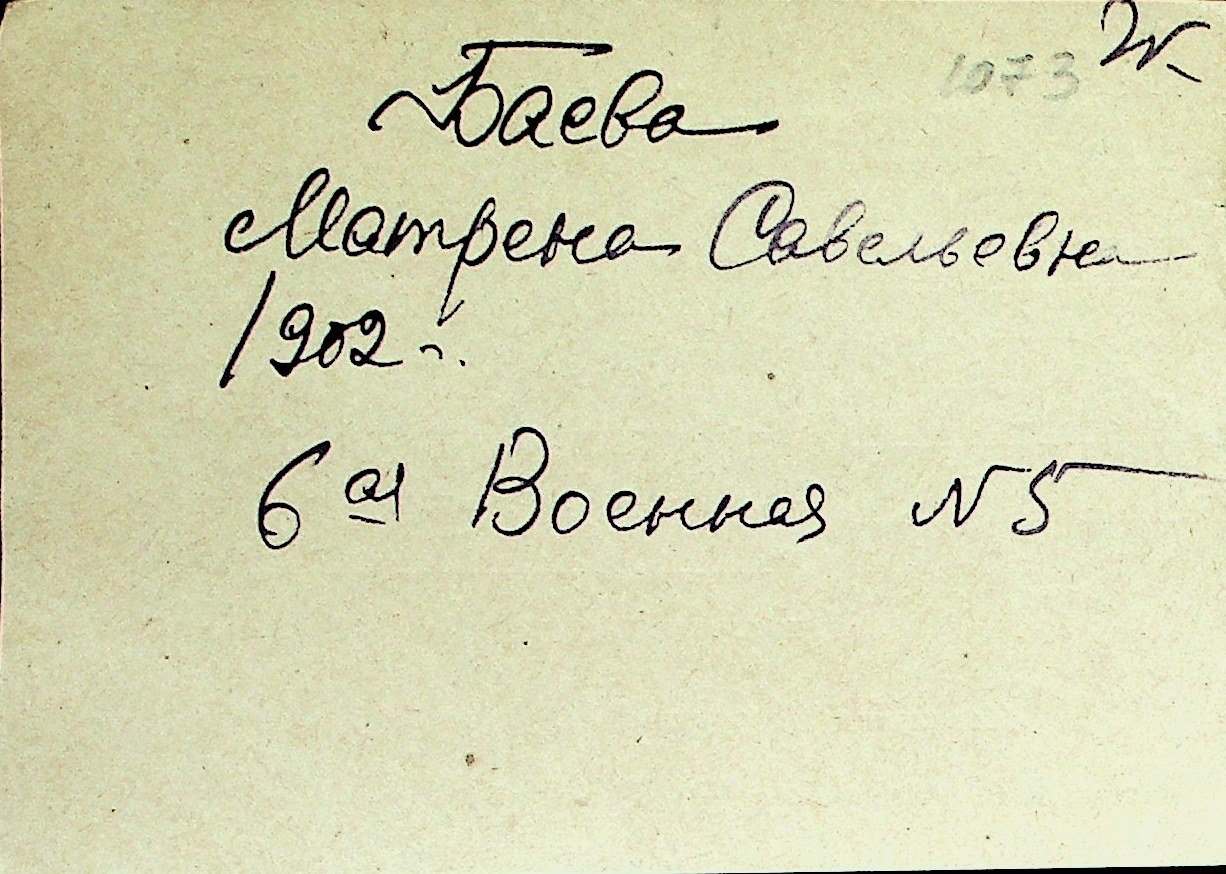 1073
Баева
Матрена Савельевна
1902 г.
6 ая Военная N 5